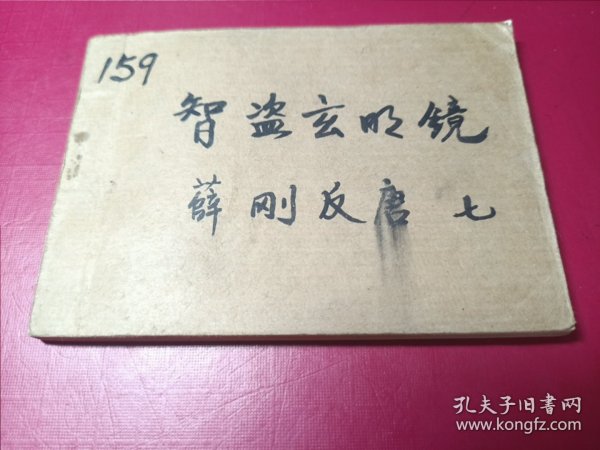 159
智盗玄明镜
薛刚反唐 七
孔夫子旧書网
www.kongfz.com